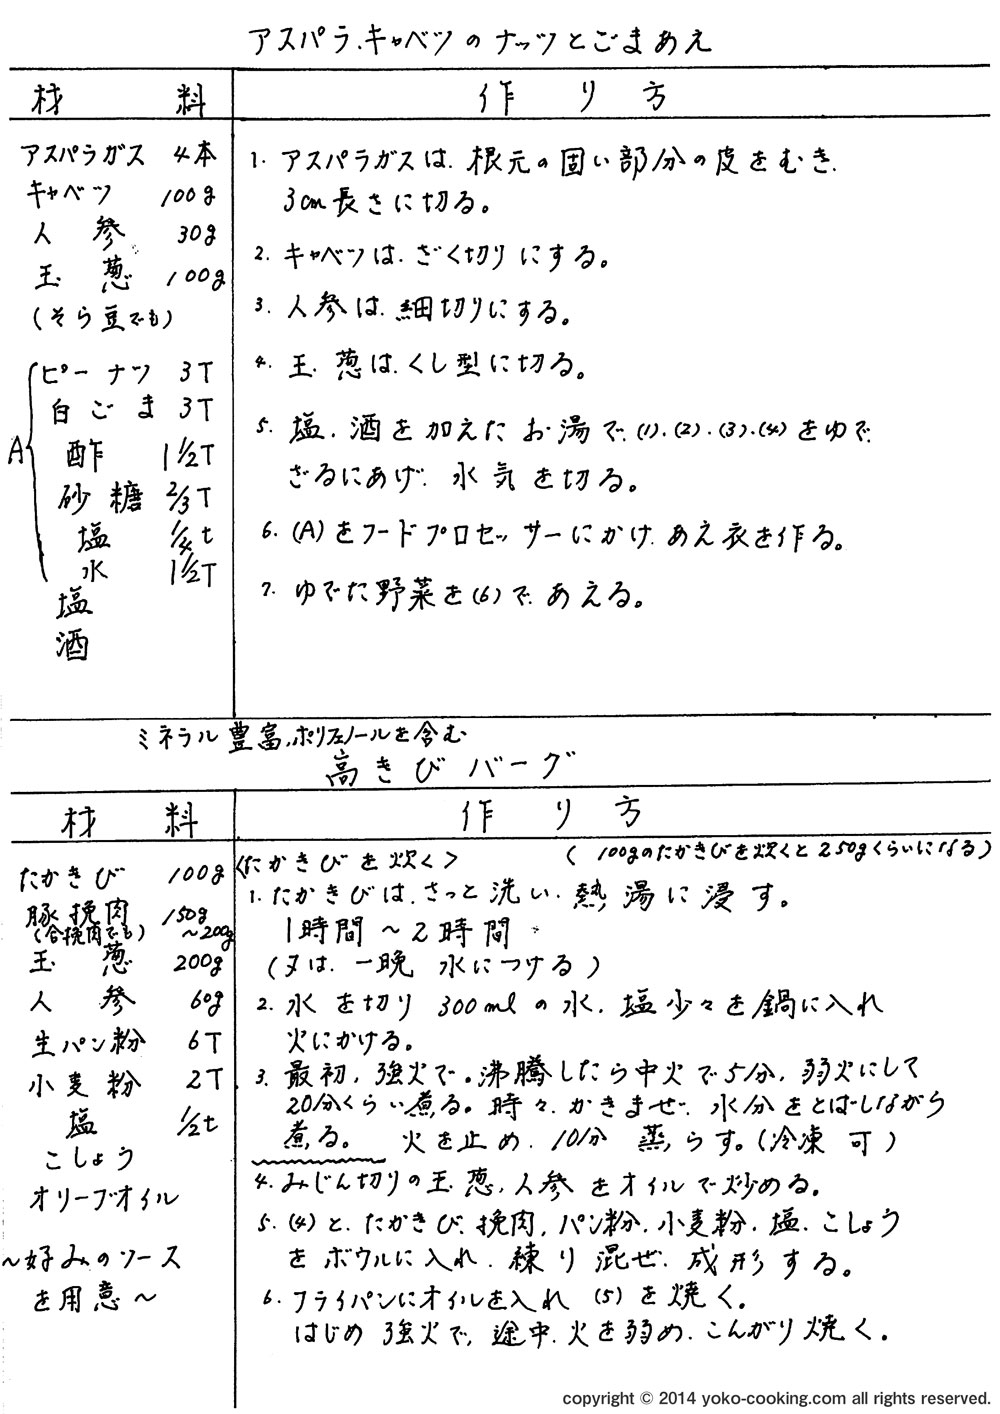 アスパラ、キャベツのナッツとごまあえ
材 料
作 り 方
アスパラガス 4本
キャベツ 100g
人 参 30g
玉 葱 100g
(そら豆でも)
A
ピーナツ 3T
白ごま 3T
酢 1 1/2T
砂糖 2/3T
塩 1/4t
水 1 1/2T
塩
酒
1. アスパラガスは、根元の固い部分の皮をむき、
3cm長さに切る。
2. キャベツは、ざく切りにする。
3. 人参は、細切りにする。
4. 玉葱は、くし型に切る。
5. 塩、酒を加えたお湯で、(1)、(2)、(3)、(4)をゆで、
ざるにあげ、水気を切る。
6. (A)をフードプロセッサーにかけ、あえ衣を作る。
7. ゆでた野菜を(6)で、あえる。
ミネラル豊富、ポリフェノールを含む
高きびバーグ
材 料
作 り 方
たかきび 100g
豚挽肉 150g
(合挽肉でも) ～200g
玉 葱 200g
人 参 60g
生パン粉 6T
小麦粉 2T
塩 1/2t
こしょう
オリーブオイル
～好みのソース
を用意～
<たかきびを炊く> (100gのたかきびを炊くと250gくらいになる)
1. たかきびは、さっと洗い、熱湯に浸す。
1時間～2時間
(又は、一晩 水につける)
2. 水を切り 300mlの水、塩少々を鍋に入れ
火にかける。
3. 最初、強火で。沸騰したら中火で5分、弱火にして
20分くらい煮る。時々、かきまぜ、水分をとばしながら
煮る。 火を止め、10分 蒸らす。(冷凍 可)
4. みじん切りの玉葱、人参をオイルで炒める。
5. (4)と、たかきび、挽肉、パン粉、小麦粉、塩、こしょう
をボウルに入れ、練り混ぜ、成形する。
6. フライパンにオイルを入れ (5)を焼く。
はじめ強火で、途中、火を弱め、こんがり焼く。
copyright © 2014 yoko-cooking.com all rights reserved.